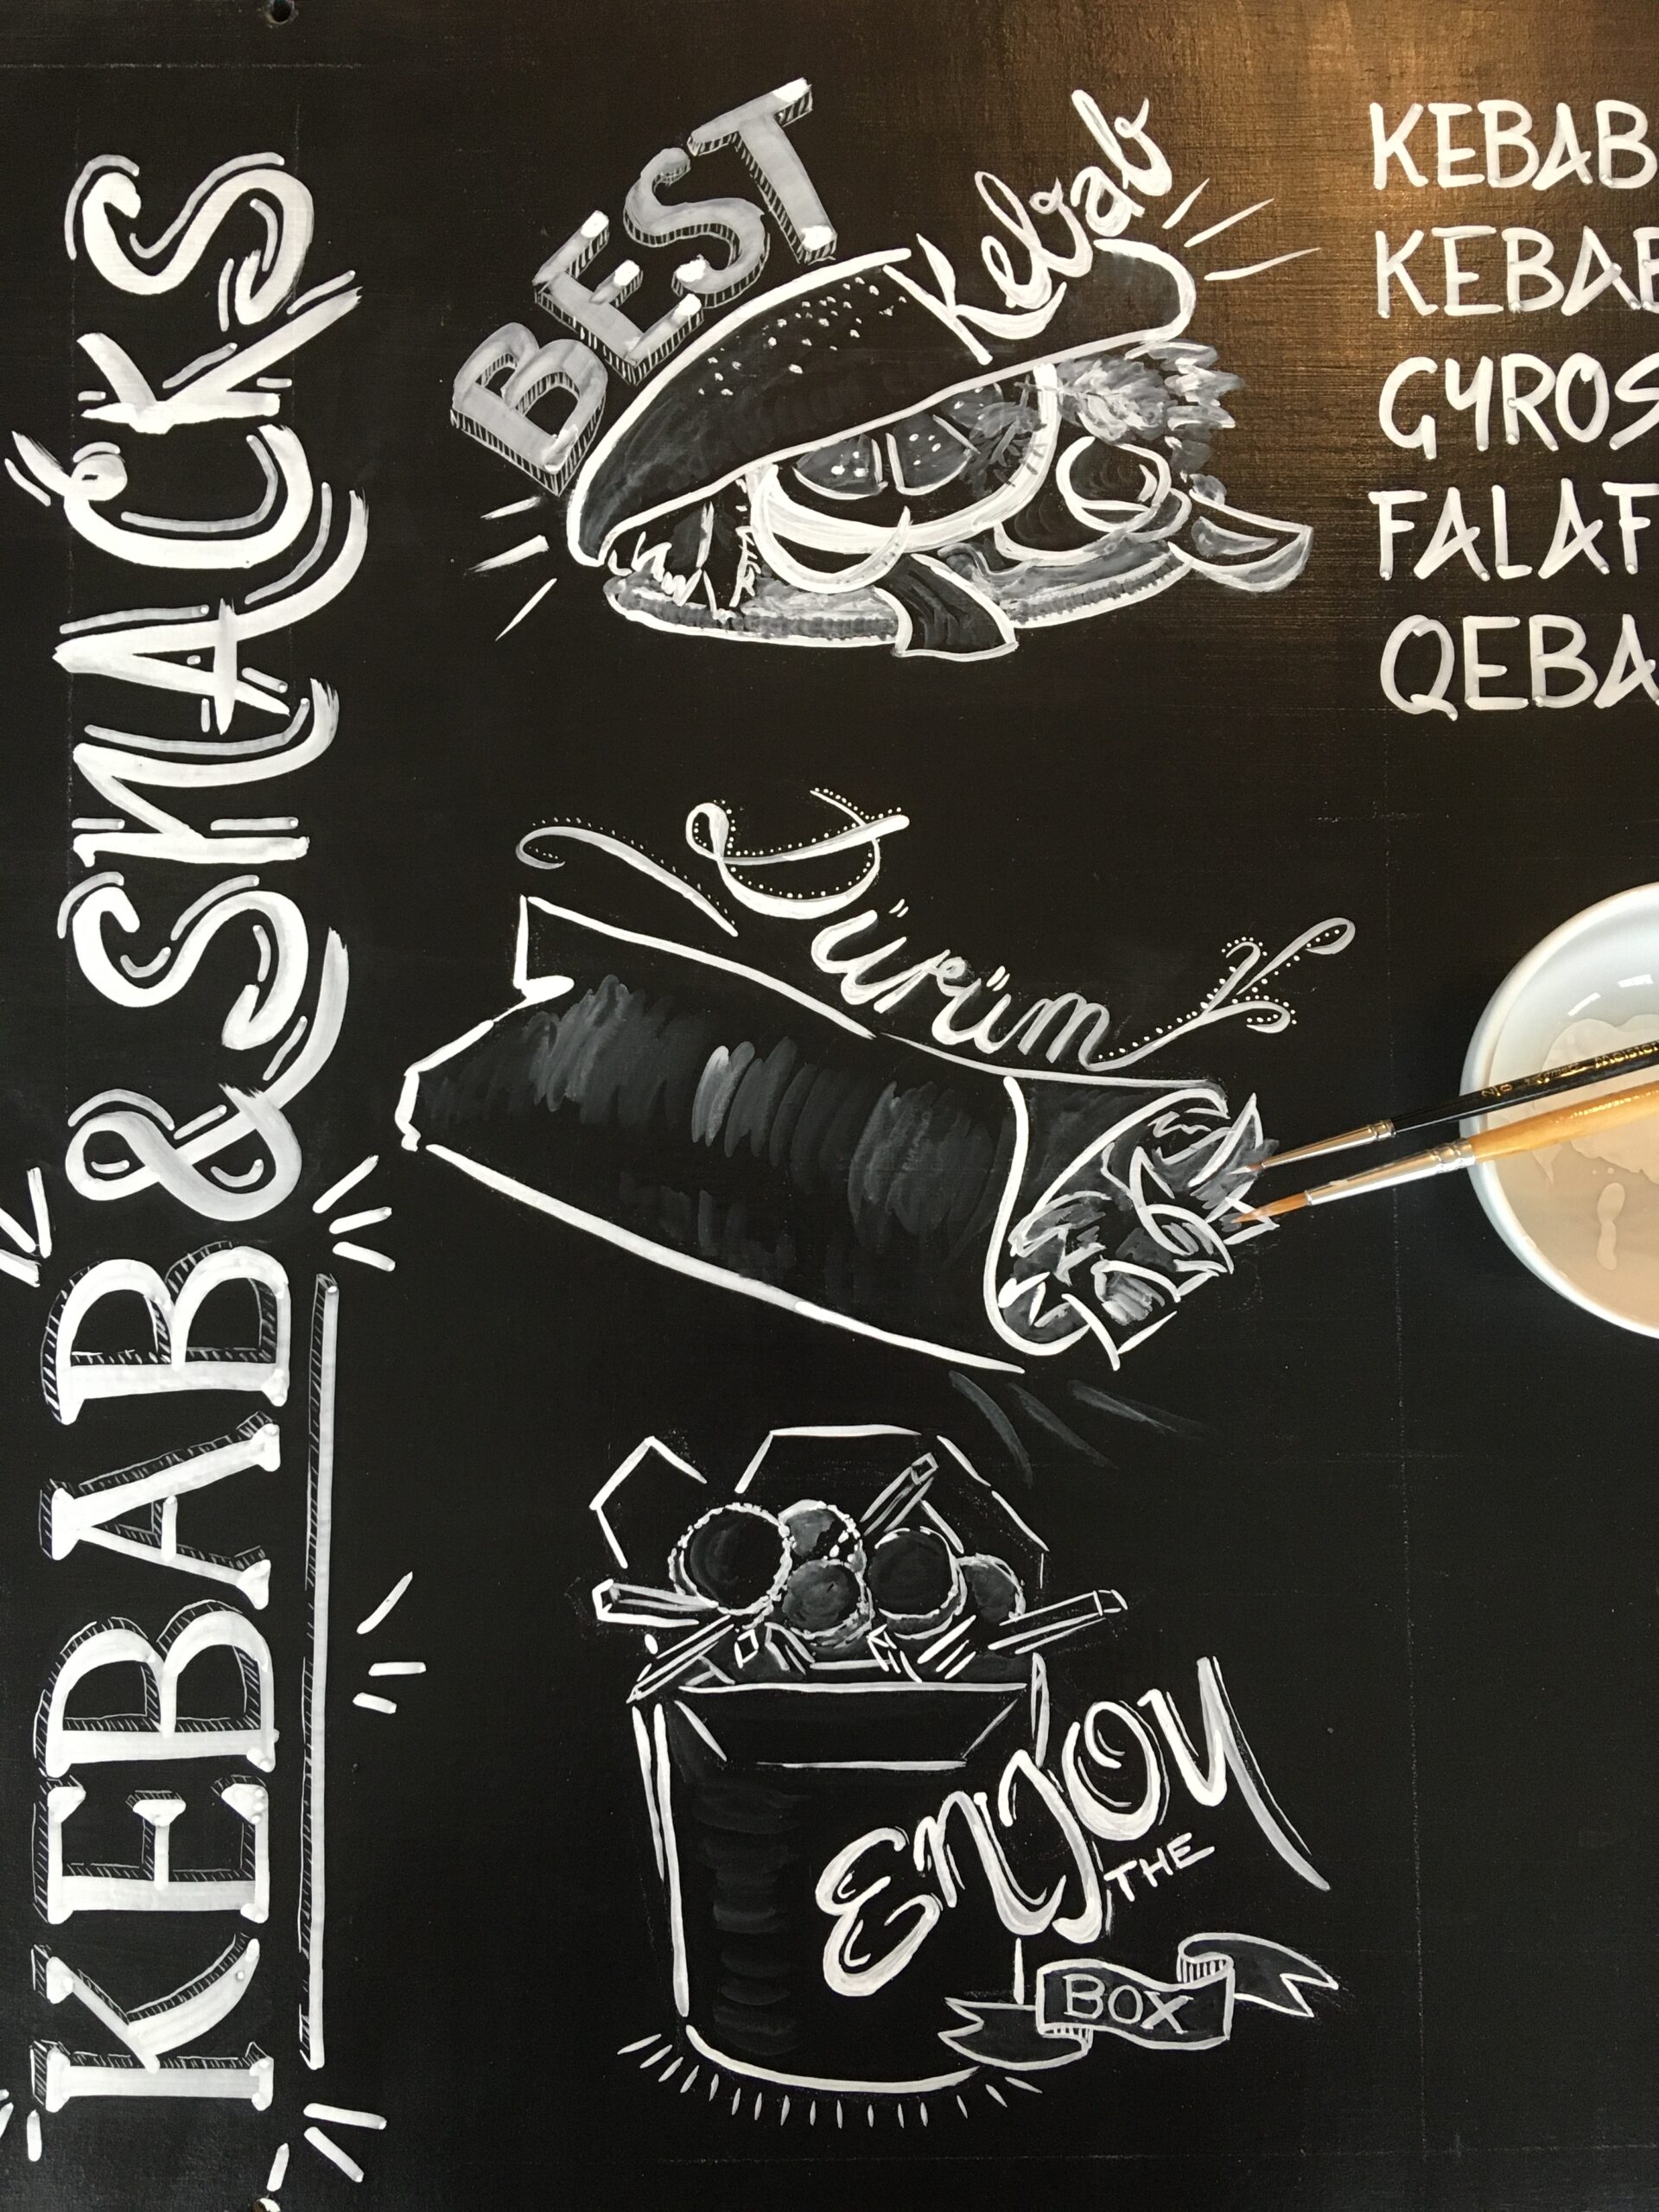 KEBAB & SNACKS
BEST
Kebab
KEBAB
KEBAB
GYROS
FALAF
QEBA
Dürüm
Enjoy
THE
BOX